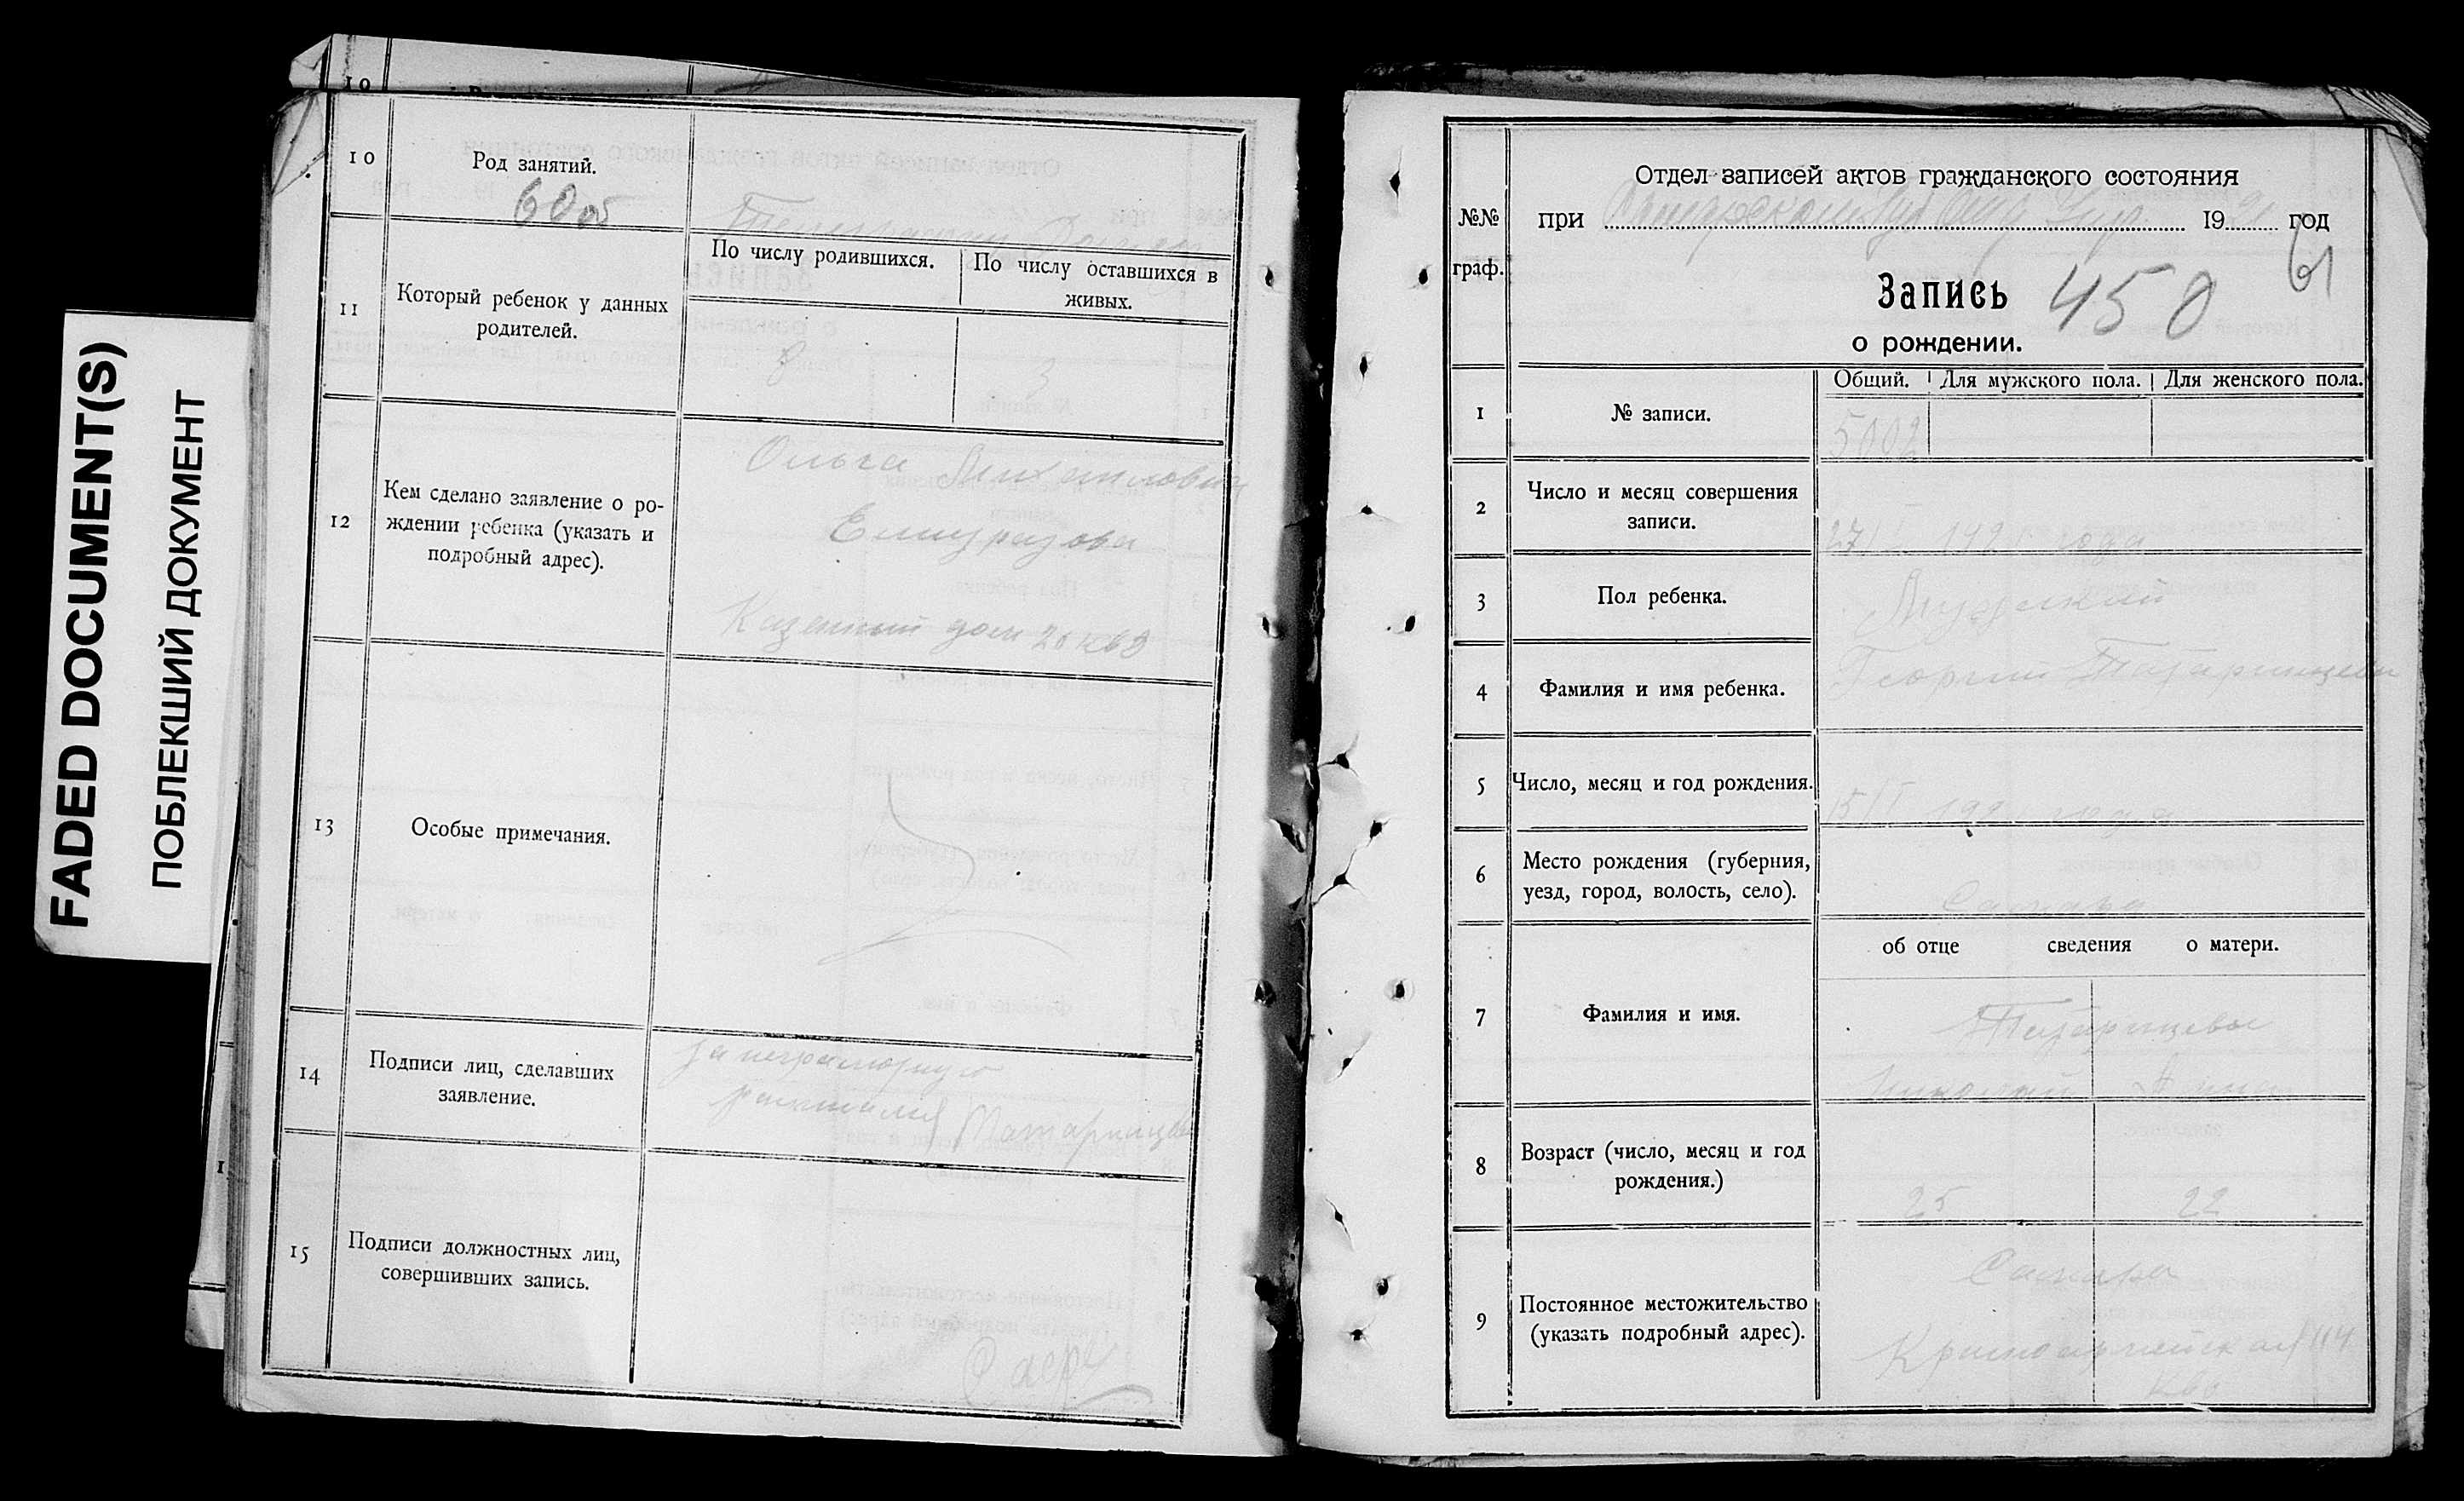 FADED DOCUMENT(S)
ПОБЛЕКШИЙ ДОКУМЕНТ
10
10
Род занятий.
60об
11
Который ребенок у данных
родителей.
По числу родившихся.
По числу оставшихся в
живых.
3
12
Кем сделано заявление о ро-
ждении ребенка (указать и
подробный адрес).
Ольга
Казенный дом 20 кв 3
13
Особые примечания.
14
Подписи лиц, сделавших
заявление.
за неграмотную
15
Подписи должностных лиц,
совершивших запись.
№№
граф.
Отдел записей актов гражданского состояния
при 19 21 год
61
Запись 450
о рождении.
Общий. Для мужского пола. Для женского пола.
1
№ записи.
5002
2
Число и месяц совершения
записи.
27/I 1921 года
3
Пол ребенка.
Мужской
4
Фамилия и имя ребенка.
Георгий
5
Число, месяц и год рождения.
15/I
года
6
Место рождения (губерния,
уезд, город, волость, село).
Самара
об отце сведения о матери.
7
Фамилия и имя.
Николай
8
Возраст (число, месяц и год
рождения.)
25 22
9
Постоянное местожительство
(указать подробный адрес).
Самара
Красноармейская 114